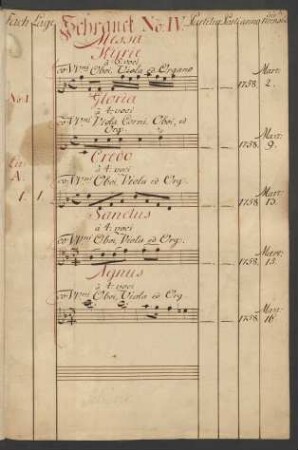 Fach Lage Schranck No: IV.
Messa
Kyrie
à 4 voci
co VVni Oboi, Viola ed Organo
No: 1
1758. Mart: 2.
Gloria
à 4 voci
co VVni Viola Corni, Oboi, ed
Org.
1758. Mart: 9.
Lit:
A.
Credo
à 4 voci
co VVni Oboi, Viola ed Org.
1 1
1758. Mart: 13.
Sanctus
à 4 voci
co VVni Oboi, Viola ed Org.
1758. Mart: 15.
Agnus
à 4 voci
co VVni Oboi, Viola ed Org.
1758. Mart: 16.